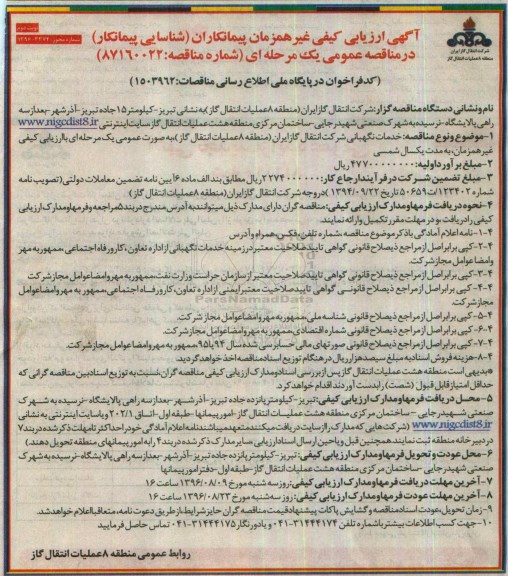 نوبت دوم
شماره مجوز: ۱۳۹۶.۳۲۷۴
شرکت انتقال گاز ایران
منطقه ۸ عملیات انتقال گاز
آگهی ارزیابی کیفی غیر همزمان پیمانکاران (شناسایی پیمانکار)
در مناقصه عمومی یک مرحله ای (شماره مناقصه: ۸۷۱۶۰۰۲۲)
(کد فراخوان در پایگاه ملی اطلاع رسانی مناقصات: ۱۵۰۳۹۶۲)
نام و نشانی دستگاه مناقصه گزار: شرکت انتقال گاز ایران (منطقه ۸ عملیات انتقال گاز) به نشانی تبریز-کیلومتر ۱۵ جاده تبریز-آذرشهر-بعد از سه
راهی پالایشگاه-نرسیده به شهرک صنعتی شهید رجایی-ساختمان مرکزی منطقه هشت عملیات انتقال گاز سایت اینترنتی www.nigcdist8.ir
۱-موضوع و نوع مناقصه: خدمات نگهبانی شرکت انتقال گاز ایران (منطقه ۸ عملیات انتقال گاز)، به صورت عمومی یک مرحله ای با ارزیابی کیفی
غیر همزمان، به مدت یکسال شمسی
۲-مبلغ برآورد اولیه: ۴۷۷۰۰۰۰۰۰۰۰ ریال
۳-مبلغ تضمین شرکت در فرآیند ارجاع کار: ۲۲۷۴۰۰۰۰۰۰ ریال مطابق بند الف ماده ۶ آیین نامه تضمین معاملات دولتی (تصویب نامه
شماره ۱۲۳۴۰۲/ت۵۰۶۵۹ تاریخ ۱۳۹۴/۰۹/۲۲) در وجه شرکت انتقال گاز ایران (منطقه ۸ عملیات انتقال گاز)
۴-نحوه دریافت فرمها و مدارک ارزیابی کیفی: مناقصه گران دارای مدارک ذیل میتوانند به آدرس مندرج در بند ۵ مراجعه و فرمها و مدارک ارزیابی
کیفی را دریافت و در مهلت مقرر تکمیل و ارائه نمایند.
۴-۱-نامه اعلام آمادگی با ذکر موضوع مناقصه، شماره تلفن، فکس، همراه و آدرس
۴-۲-کپی برابر اصل از مراجع ذیصلاح قانونی گواهی تایید صلاحیت معتبر در زمینه خدمات نگهبانی از اداره تعاون، کار و رفاه اجتماعی، ممهور به مهر
و امضا عوامل مجاز شرکت.
۴-۳-کپی برابر اصل از مراجع ذیصلاح قانونی گواهی تایید صلاحیت معتبر از سازمان حراست وزارت نفت، ممهور به مهر و امضا عوامل مجاز شرکت
۴-۴-کپی برابر اصل از مراجع ذیصلاح قانونی گواهی تایید صلاحیت معتبر ایمنی از اداره تعاون، کار و رفاه اجتماعی، ممهور به مهر و امضا عوامل
مجاز شرکت.
۴-۵-کپی برابر اصل از مراجع ذیصلاح قانونی شناسه ملی، ممهور به مهر و امضا عوامل مجاز شرکت.
۴-۶-کپی برابر اصل از مراجع ذیصلاح قانونی شماره اقتصادی، ممهور به مهر و امضا عوامل مجاز شرکت.
۴-۷-کپی برابر اصل از مراجع ذیصلاح قانونی صورتهای مالی حسابرسی شده سال ۹۴ یا ۹۵، ممهور به مهر و امضا عوامل مجاز شرکت.
۴-۸-هزینه فروش اسناد به مبلغ سیصد هزار ریال در هنگام توزیع اسناد مناقصه اخذ خواهد گردید.
*بدیهی است منطقه هشت عملیات انتقال گاز پس از بررسی اسناد و مدارک ارزیابی کیفی مناقصه گران، نسبت به توزیع اسناد بین مناقصه گرانی که
حداقل امتیاز قابل قبول (شصت) را بدست آوردند اقدام خواهد کرد.
۵-محل دریافت فرمها و مدارک ارزیابی کیفی: تبریز-کیلومتر پانزده جاده تبریز-آذرشهر-بعد از سه راهی پالایشگاه-نرسیده به شهرک
صنعتی شهید رجایی-ساختمان مرکزی منطقه هشت عملیات انتقال گاز-امور پیمانها-طبقه اول-اتاق ۲۰۲/۱ و یا سایت اینترنتی به نشانی
www.nigcdist8.ir (شرکت هایی که مدارک را از سایت دریافت میکنند متعهد میباشند نامه اعلام آمادگی خود را حداکثر تا مهلت ذکر شده در بند ۷
در دبیرخانه منطقه ثبت نمایند همچنین قبل و یا حین ارسال اسناد ارزیابی، سایر مدارک ذکر شده در بند ۴ را به امور پیمانهای منطقه تحویل دهند.)
۶-محل عودت و تحویل فرمها و مدارک ارزیابی کیفی: تبریز-کیلومتر پانزده جاده تبریز-آذرشهر-بعد از سه راهی پالایشگاه-نرسیده به شهرک
صنعتی شهید رجایی-ساختمان مرکزی منطقه هشت عملیات انتقال گاز-طبقه اول-دفتر امور پیمانها
۷-آخرین مهلت دریافت فرمها و مدارک ارزیابی کیفی: روز سه شنبه مورخ ۱۳۹۶/۰۸/۰۹ ساعت ۱۶
۸-آخرین مهلت عودت فرمها و مدارک ارزیابی کیفی: روز سه شنبه مورخ ۱۳۹۶/۰۸/۲۳ ساعت ۱۶
۹-زمان تحویل، عودت اسناد مناقصه و گشایش پاکات پیشنهاد قیمت مناقصه گران حایز شرایط از طریق دعوت نامه، متعاقبا اعلام خواهد شد.
۱۰-جهت کسب اطلاعات بیشتر با شماره تلفن ۳۱۴۴۴۱۷۴-۰۴۱ و یا دورنگار ۳۱۴۴۴۱۷۵-۰۴۱ تماس حاصل فرمایید
روابط عمومی منطقه ۸ عملیات انتقال گاز
ParsNamadData